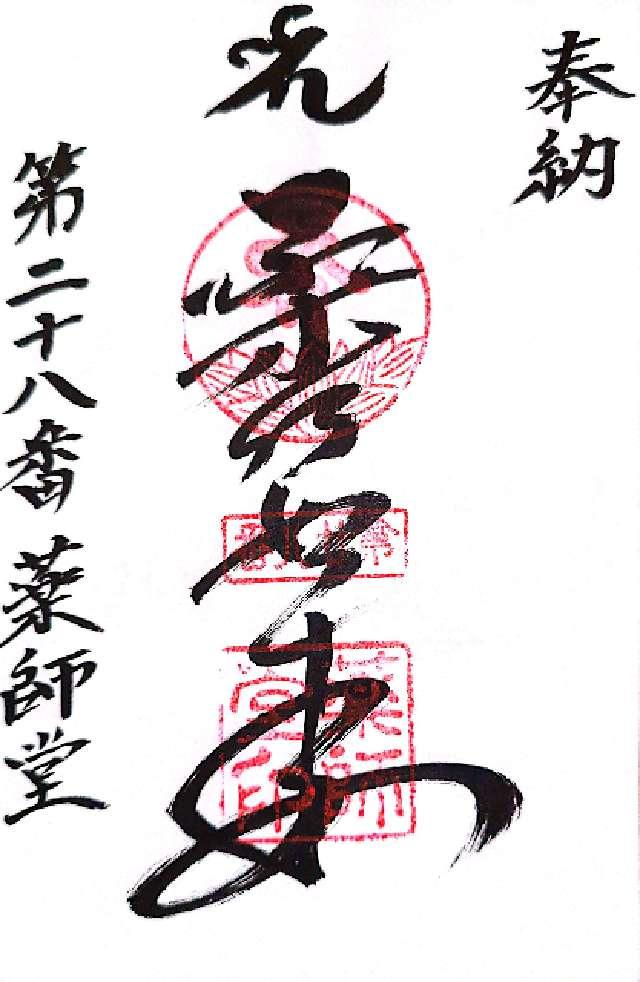 奉納
光
如来
第二十八番薬師堂
薬師
堂印